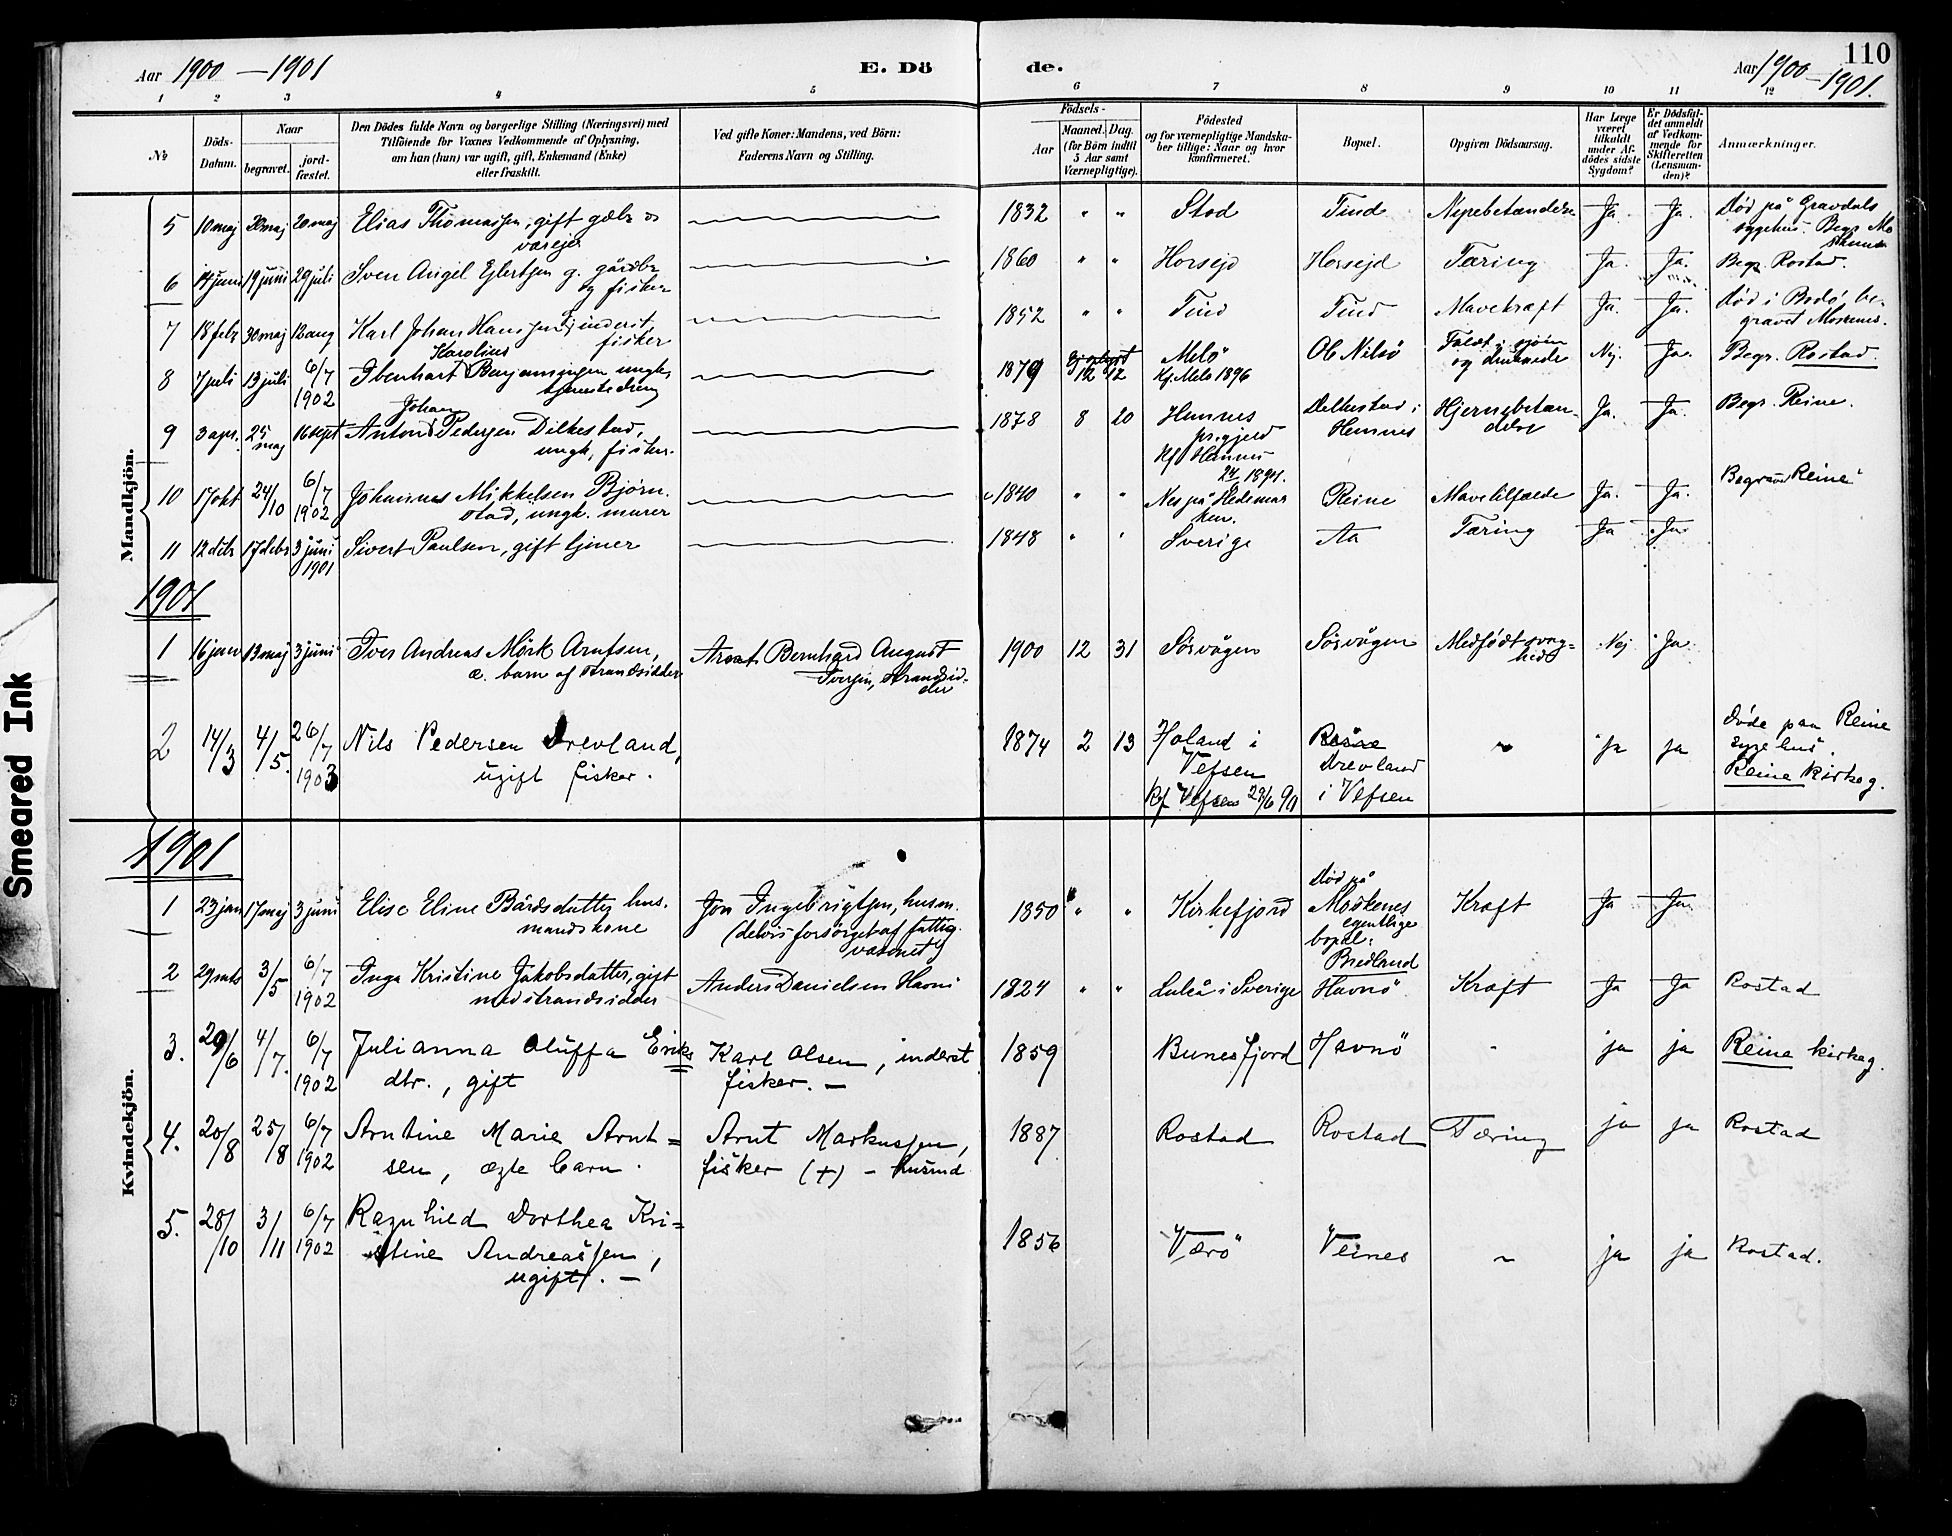 Aar 1900 – 1901
E. Dö
de.
Aar 1900 – 1901.
110
1 2 3 4 5 6 7 8 9 10 11 12
No
Döds-Datum.
Naar
begravet.
jord-fæstet.
Den Dödes fulde Navn og borgerlige Stilling (Næringsvei) med
Tilföiende for Voxnes Vedkommende af Oplysning,
om han (hun) var ugift, gift, Enkemand (Enke)
eller fraskilt.
Ved gifte Koner: Mandens, ved Börn:
Faderens Navn og Stilling.
Födsels-
Aar
Maaned. Dag.
(for Börn indtil
5 Aar samt
Værnepligtige).
Födested
og for værnepligtige Mandska-
ber tillige: Naar og hvor
konfirmeret.
Bopæl.
Opgiven Dödsaarsag.
Har Læge
været
tilkaldt
under Af-
dödes sidste
Sygdom?
Er Dödsfal-
det anmeldt
af Vedkom-
mende for
Skifteretten
(Lensman-
den)?
Anmærkninger.
Mandkjön.
5 10 maj 20 maj 20 maj Elias Thomassen, gift gdbr og
væreier
1832 " " Stod Tind Nyrebetændelse Ja. Ja. Död på Gravdals
sygehus. Begr. Mo
skenes
6 14 juni 19 juni 29 juli Sven Angel Ejlertsen g. gårdbr.
og fisker
1860 " " Horsejd Horsejd Tæring Ja. Ja. Begr. Rostad.
7 18 febr 30 maj 12 aug Karl Johan Hanssen, inderst,
fisker
1852 " " Tind Tind Mavekræft Ja. Ja. Död i Bodö, be-
gravet Moskenes.
8 7 juli 13 juli 6/7 1902 Ibenhart Karolius Benjaminsen ungk.
tjenestedreng
1879 12 12 Melö
Kf. Melö 1896
Ol Nilsö Faldt i sjöen
og druknede
Nej. Ja. Begr. Rostad.
9 3 apr. 25 maj 16 sept Anton Johan Pedersen Dilkestad,
ungk., fisker.
1878 8 20 Hemnes
pr.gjeld
Kf. Hemnes
1894.
Dilkestad i
Hemnes
Hjernebetæn-
delse
Ja. Ja. Begr. Reine.
10 17 okt 24/10 6/7 1902 Johannes Mikkelsen Bjørn-
stad, ungk. murer
1840 " " Nes på Hedemar
ken.
Reine Mavetilfælde Ja. Ja. Begr. Reine
11 12 debr 17 debr 3 juni 1901 Sivert Paulsen, gift tjener
1848 " " Sverige Aa Tæring Ja Ja
1901
1 16 jan 13 maj 3 juni Iver Andreas Mörk Arntsen,
æ. barn af strandsidder
Arent Bernhard August
Iversen, strandsid-
der
1900 12 31 Sörvågen Sörvågen Medfödt svag-
hed
Nej Ja
2 14/3 4/5. 26/7 1903 Nils Pedersen Drevland,
ugift fisker.
1874 2 13 Holand i
Vefsen
Kf Vefsen 29/6 90
Drevland
i Vefsen
~ ja ja Döde paa Reine
sygehus.
Reine kirkeg.
Kvindekjön.
1901
1 23 jan 17 maj 3 juni Elise Eline Bårdsdatter hus-
mandskone
Jon Ingebrigtsen, husm.
(delvis forsörget af fattig-
væsenet)
1850 " " Kirkefjord Död på
Moskenes
egentlige
bopæl:
Bredland
Kræft Ja Ja
2 29 mts 3/5 6/7 1902 Inga Kristine Jakobsdatter, gift
med strandsidder
Anders Danielsen Havnö
1824 " " Luleå i Sverige Havnö Kræft Ja Ja Rostad
3. 29/6 4/7. 6/7 1902 Julianna Oluffa Eriks
dtr., gift
Karl Olsen, inderst
fisker. –
1859 Bunesfjord Havnö - ja ja Reine kirkeg.
4. 20/8 25/8 6/7 1902 Arntine Marie Arnt=
sen, ægte barn.
Arnt Markussen,
fisker (+) – husmd
1887 Rostad Rostad Tæring ja ja Rostad
5. 28/10 3/11 6/7 1902 Ragnhild Dorthea Kri=
stine Andreassen,
ugift. –
1856 Værö Veines ~ ja ja Rostad.
Smeared Ink